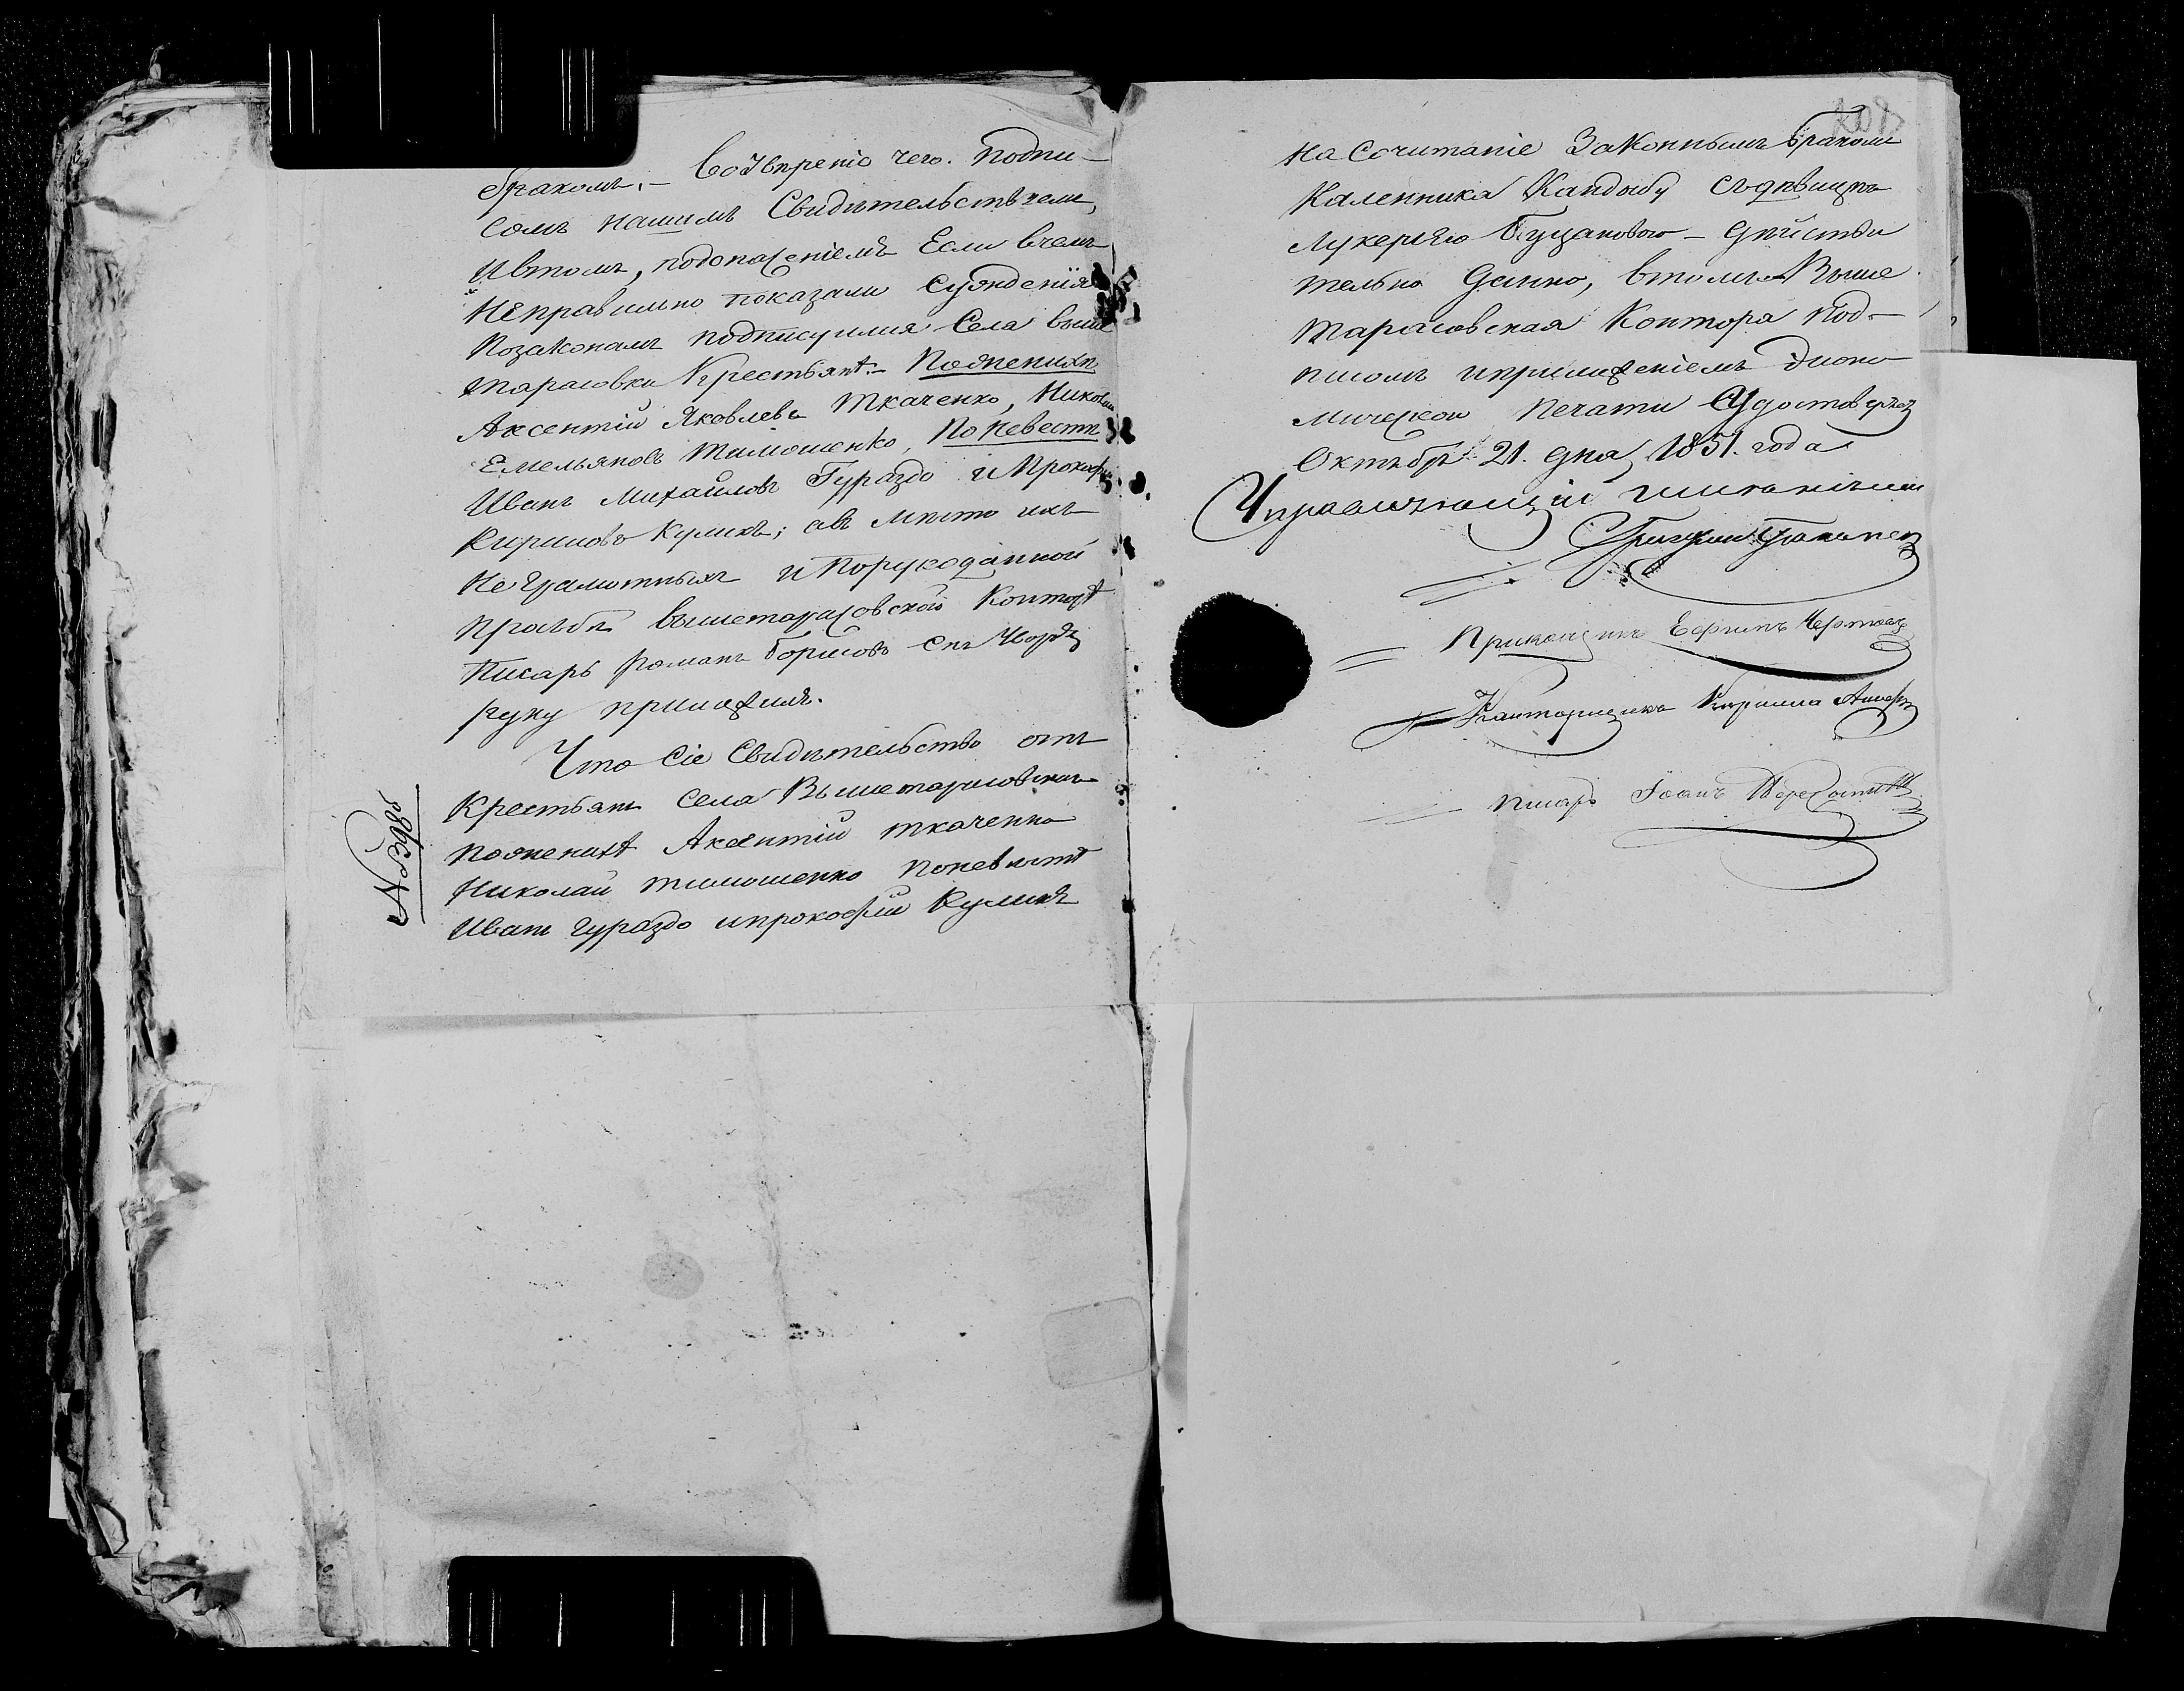 бракомъ. – Воувѣреніе чего. Подпи–
сомъ нашимъ Свидѣтельствуемъ,
Ивтомъ, подопасеніемъ Если вчемъ
Неправильно показали Сужденія
Позаконамъ подписуимся Села выше
тарасовки Крестьянѣ. – Поженихѣ
Аксентій Яковлевъ Ткаченко, Николай
Емельяновъ Тимошенко, По Невестѣ
Иванъ Михайловъ Гураздо и Прокофій
Кириловъ Куликъ; авъ мѣсто ихъ
Неграмотныхъ ипорукоданной
прозбѣ вышетарасовской Конторѣ
Писарь романъ борисовъ
руку приложилъ.
Что Сіе Свидѣтельство отъ
Крестьянъ Села Вышетарасовки
Поженихѣ Аксентій ткаченко
Николай тимошенко Поневестѣ
Иванъ гураздо ипрокофій Куликъ
№ 398й
на Сочитаніе Законнымъ бракомъ
Каленника Кандыбу Съдѣвицею
Лукерѣю Буцановою – дѣйстви
тельно Данно, втомъ Выше
тарасовская Контора Под–
писомъ иприложеніемъ Эконо
мической Печати Удостоверяетъ
Октября 21. дня 1851. года
Управляющій имѣніемъ
Григорій
Прикащикъ Ефимъ
Канторщикъ Кирила
писарь Іоанъ